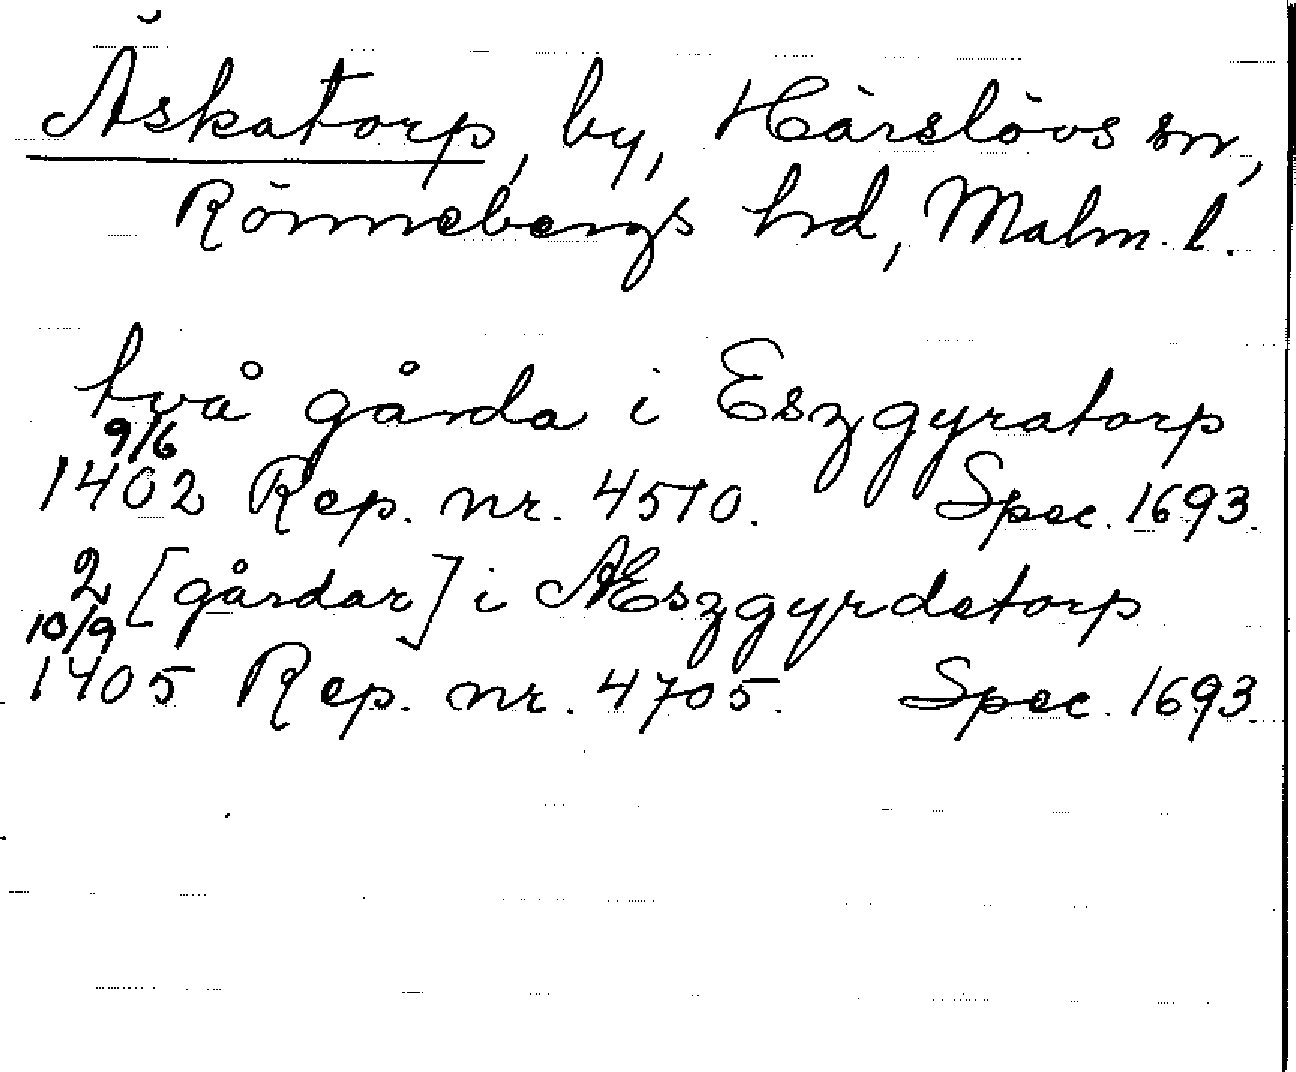 Äskatorp, by, Härslövs sn,
Rönnebergs hd, Malm. l.
två gårda i Eszgyratorp
9/6
1402 Rep. nr. 4510. Spec. 1693
2 [gårdar] i Æszgyrdetorp
10/9
1405 Rep. nr. 4705. Spec. 1693